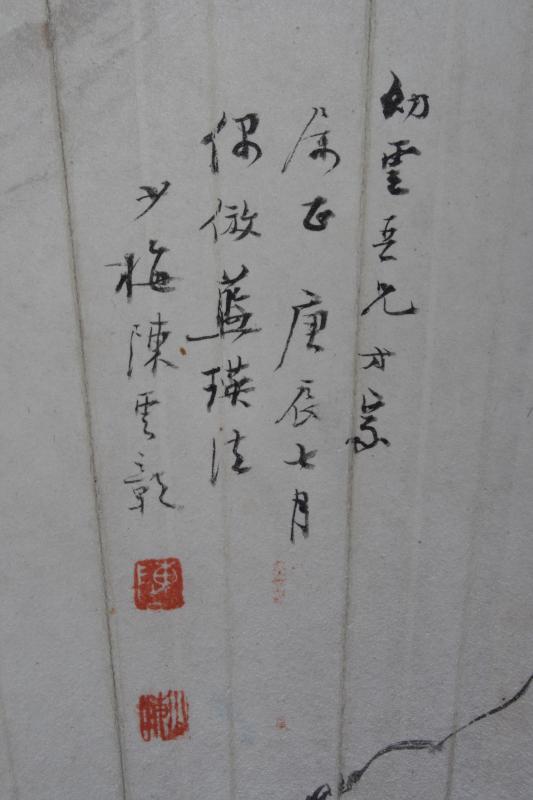 幼雲吾兄方家
屬正 庚辰七月
偶倣藍瑛法
少梅陳雲彰
陳
少梅